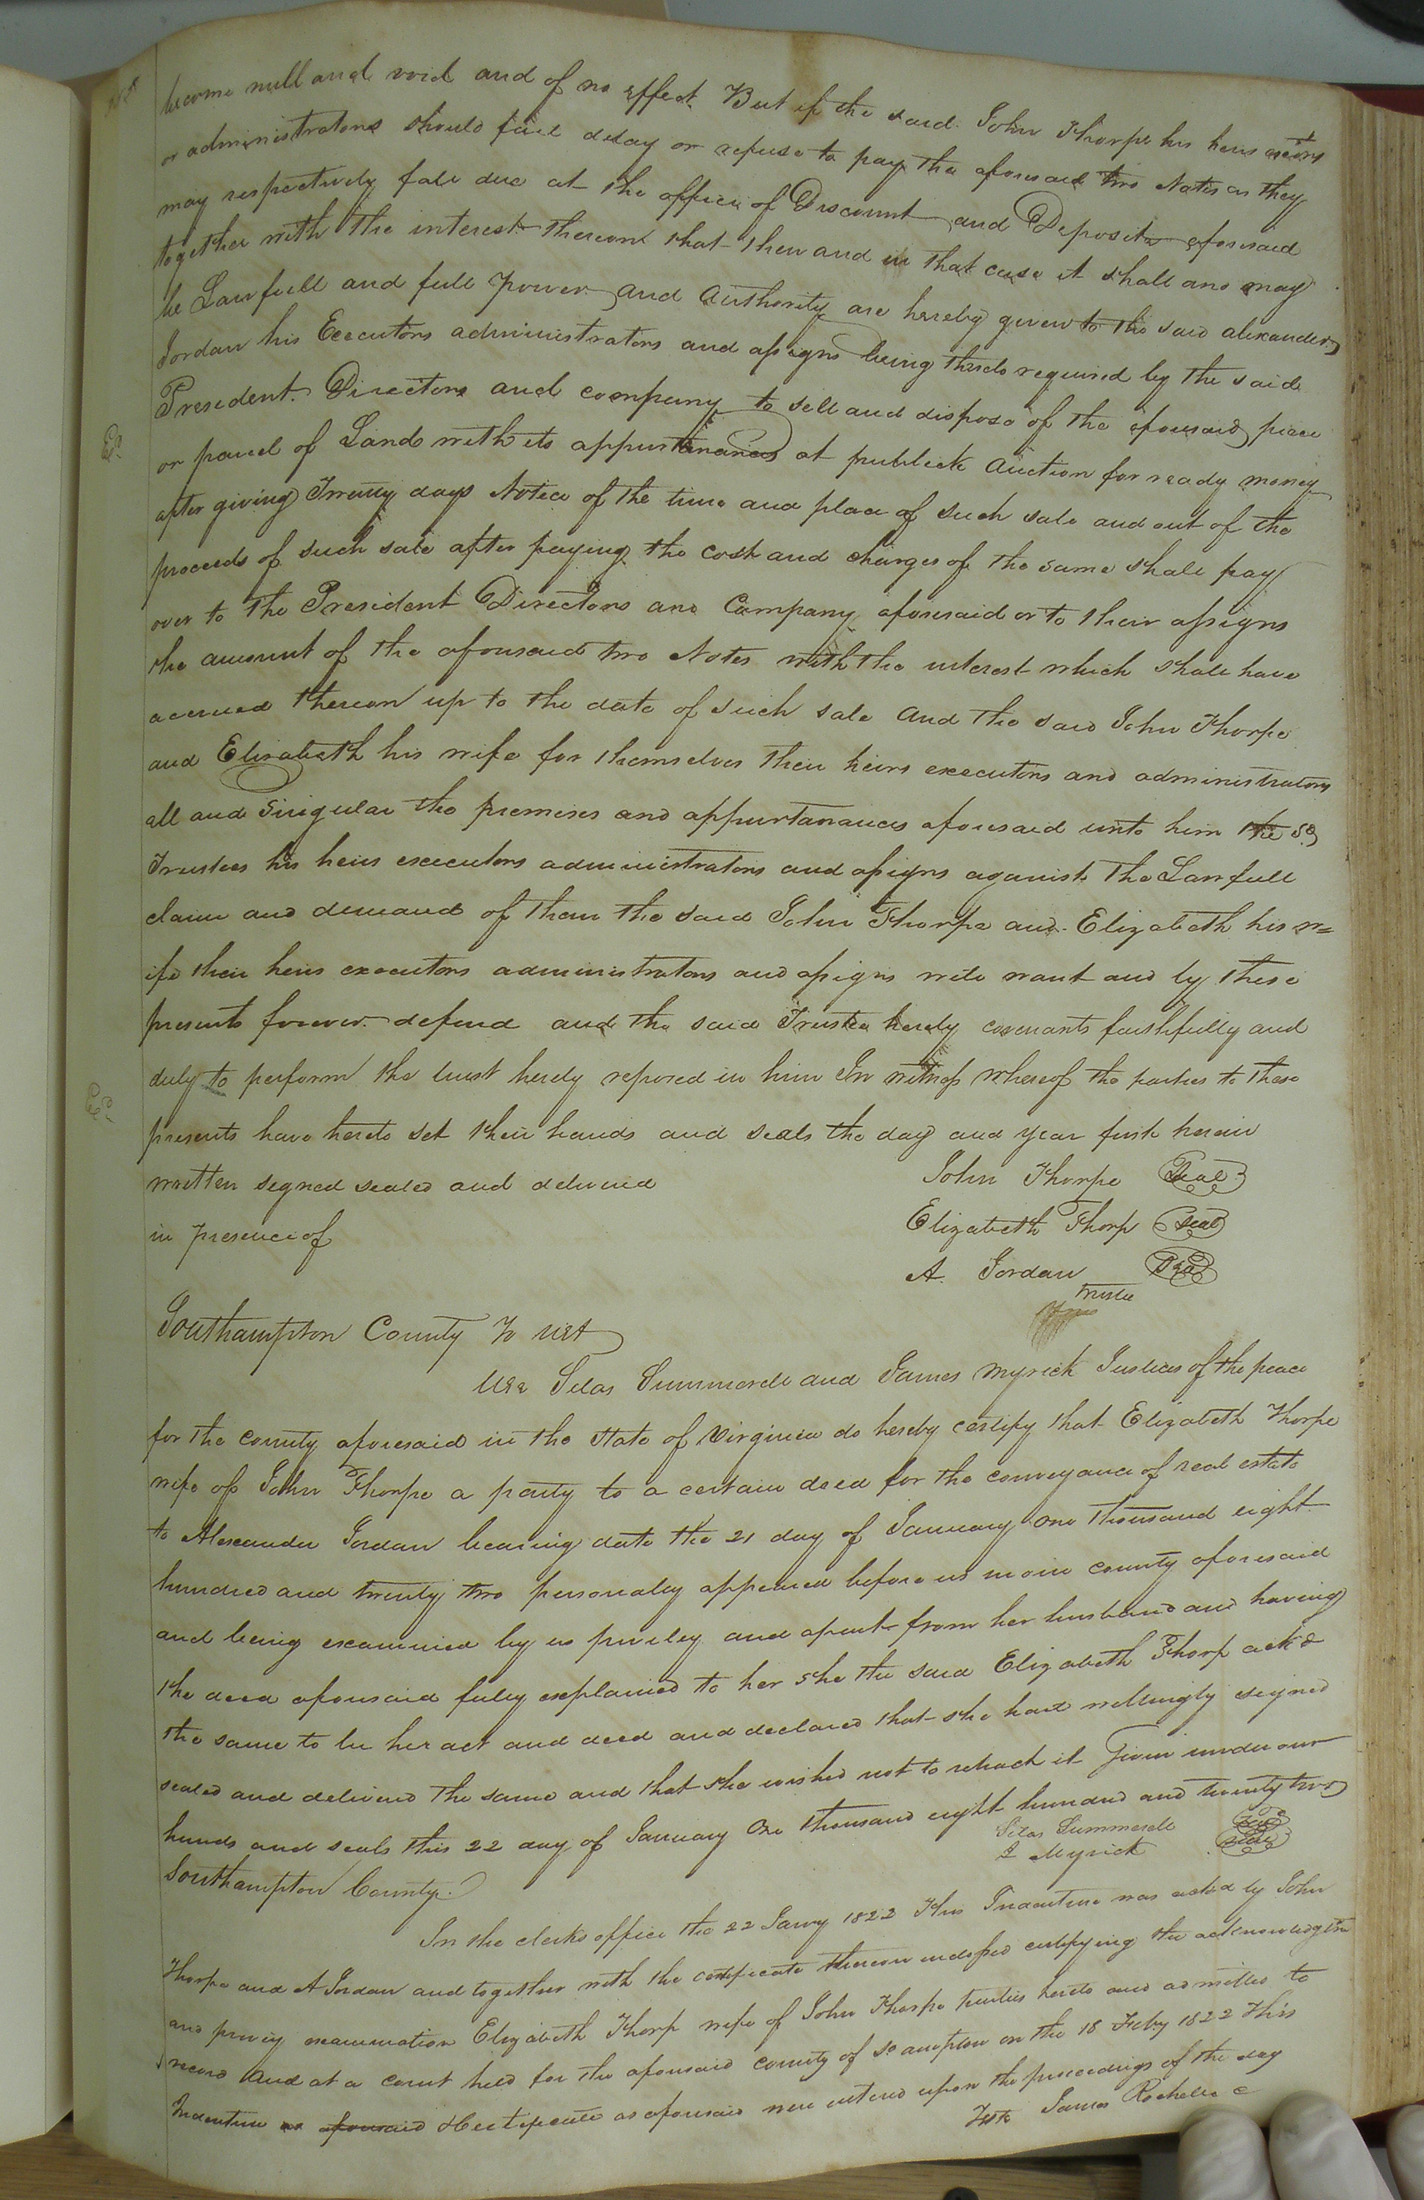 become null and void and of no effect. But if the said John Thorpe his heirs exctors
or administrators should fail delay or refuse to pay the aforesaid two Notes as they
may respectively fall due at the office of Discount and Deposite aforesaid
together with the interest thereon that then and in that case it shall and may
be Lawfull and full power and authority are hereby given to the said alexander
Jordan his Executors administrators and assigns being thereto required by the said
President Directors and company to sell and dispose of the aforesaid piece
or parcel of Land with its appurtenances at publick auction for ready money
after giving Twenty days Notice of the time and place of such sale and out of the
proceeds of such sale after paying the cost and charges of the same shall pay
over to the President Directors and Company aforesaid or to their assigns
the amount of the aforesaid two Notes with the interest which shall have
accrued thereon up to the date of such sale and the said John Thorpe
and Elizabeth his wife for themselves their heirs executors and administrators
all and singular the premises and appurtanances aforesaid unto him the sd
Trustees his heirs executors administrators and assigns against the Lawfull
claim and demand of them the said John Thorpe and Elizabeth his w=
ife their heirs executors administrators and assigns will warrant and by these
presents forever defend and the said Trustee hereby covenants faithfully and
duly to perform the trust hereby reposed in him In witness whereof the parties to these
presents have hereto set their hands and seals the day and year first herein
written signed sealed and delivered
in presence of
John Thorpe Seal
Elizabeth Thorp Seal
A. Jordan Seal
Trustee
Southampton County To wit
We Silas Summerell and James Myrick Justices of the peace
for the county aforesaid in the State of Virginia do hereby certify that Elizabeth Thorpe
wife of John Thorpe a party to a certain deed for the conveyance of real estate
to Alexander Jordan bearing date the 21 day of January one thousand eight
hundred and twenty two personally appeared before us in our county aforesaid
and being examined by us privily and apart from her husband and having
the deed aforesaid fully explained to her she the said Elizabeth Thorp ackd
the same to be her act and deed and declared that she had willingly signed
sealed and delivered the same and that she wished not to retract it Given under our
hands and seals this 22 day of January One thousand eight hundred and twenty two
Silas Summerell Seal
J Myrick Seal
Southampton County.
In the clerks office the 22 Jany 1822 This Indenture was ackd by John
Thorpe and A Jordan and together with the certificate thereon endorsed certifying the acknowledgtm
and privy examination Elizabeth Thorp wife of John Thorpe parties hereto and admitted to
record and at a court held for the aforesaid county of So ampton on the 18 Feby 1822 This
Indenture as aforesaid & Certificate as aforesaid were entered upon the proceedings of the day
Teste James Rochelle C